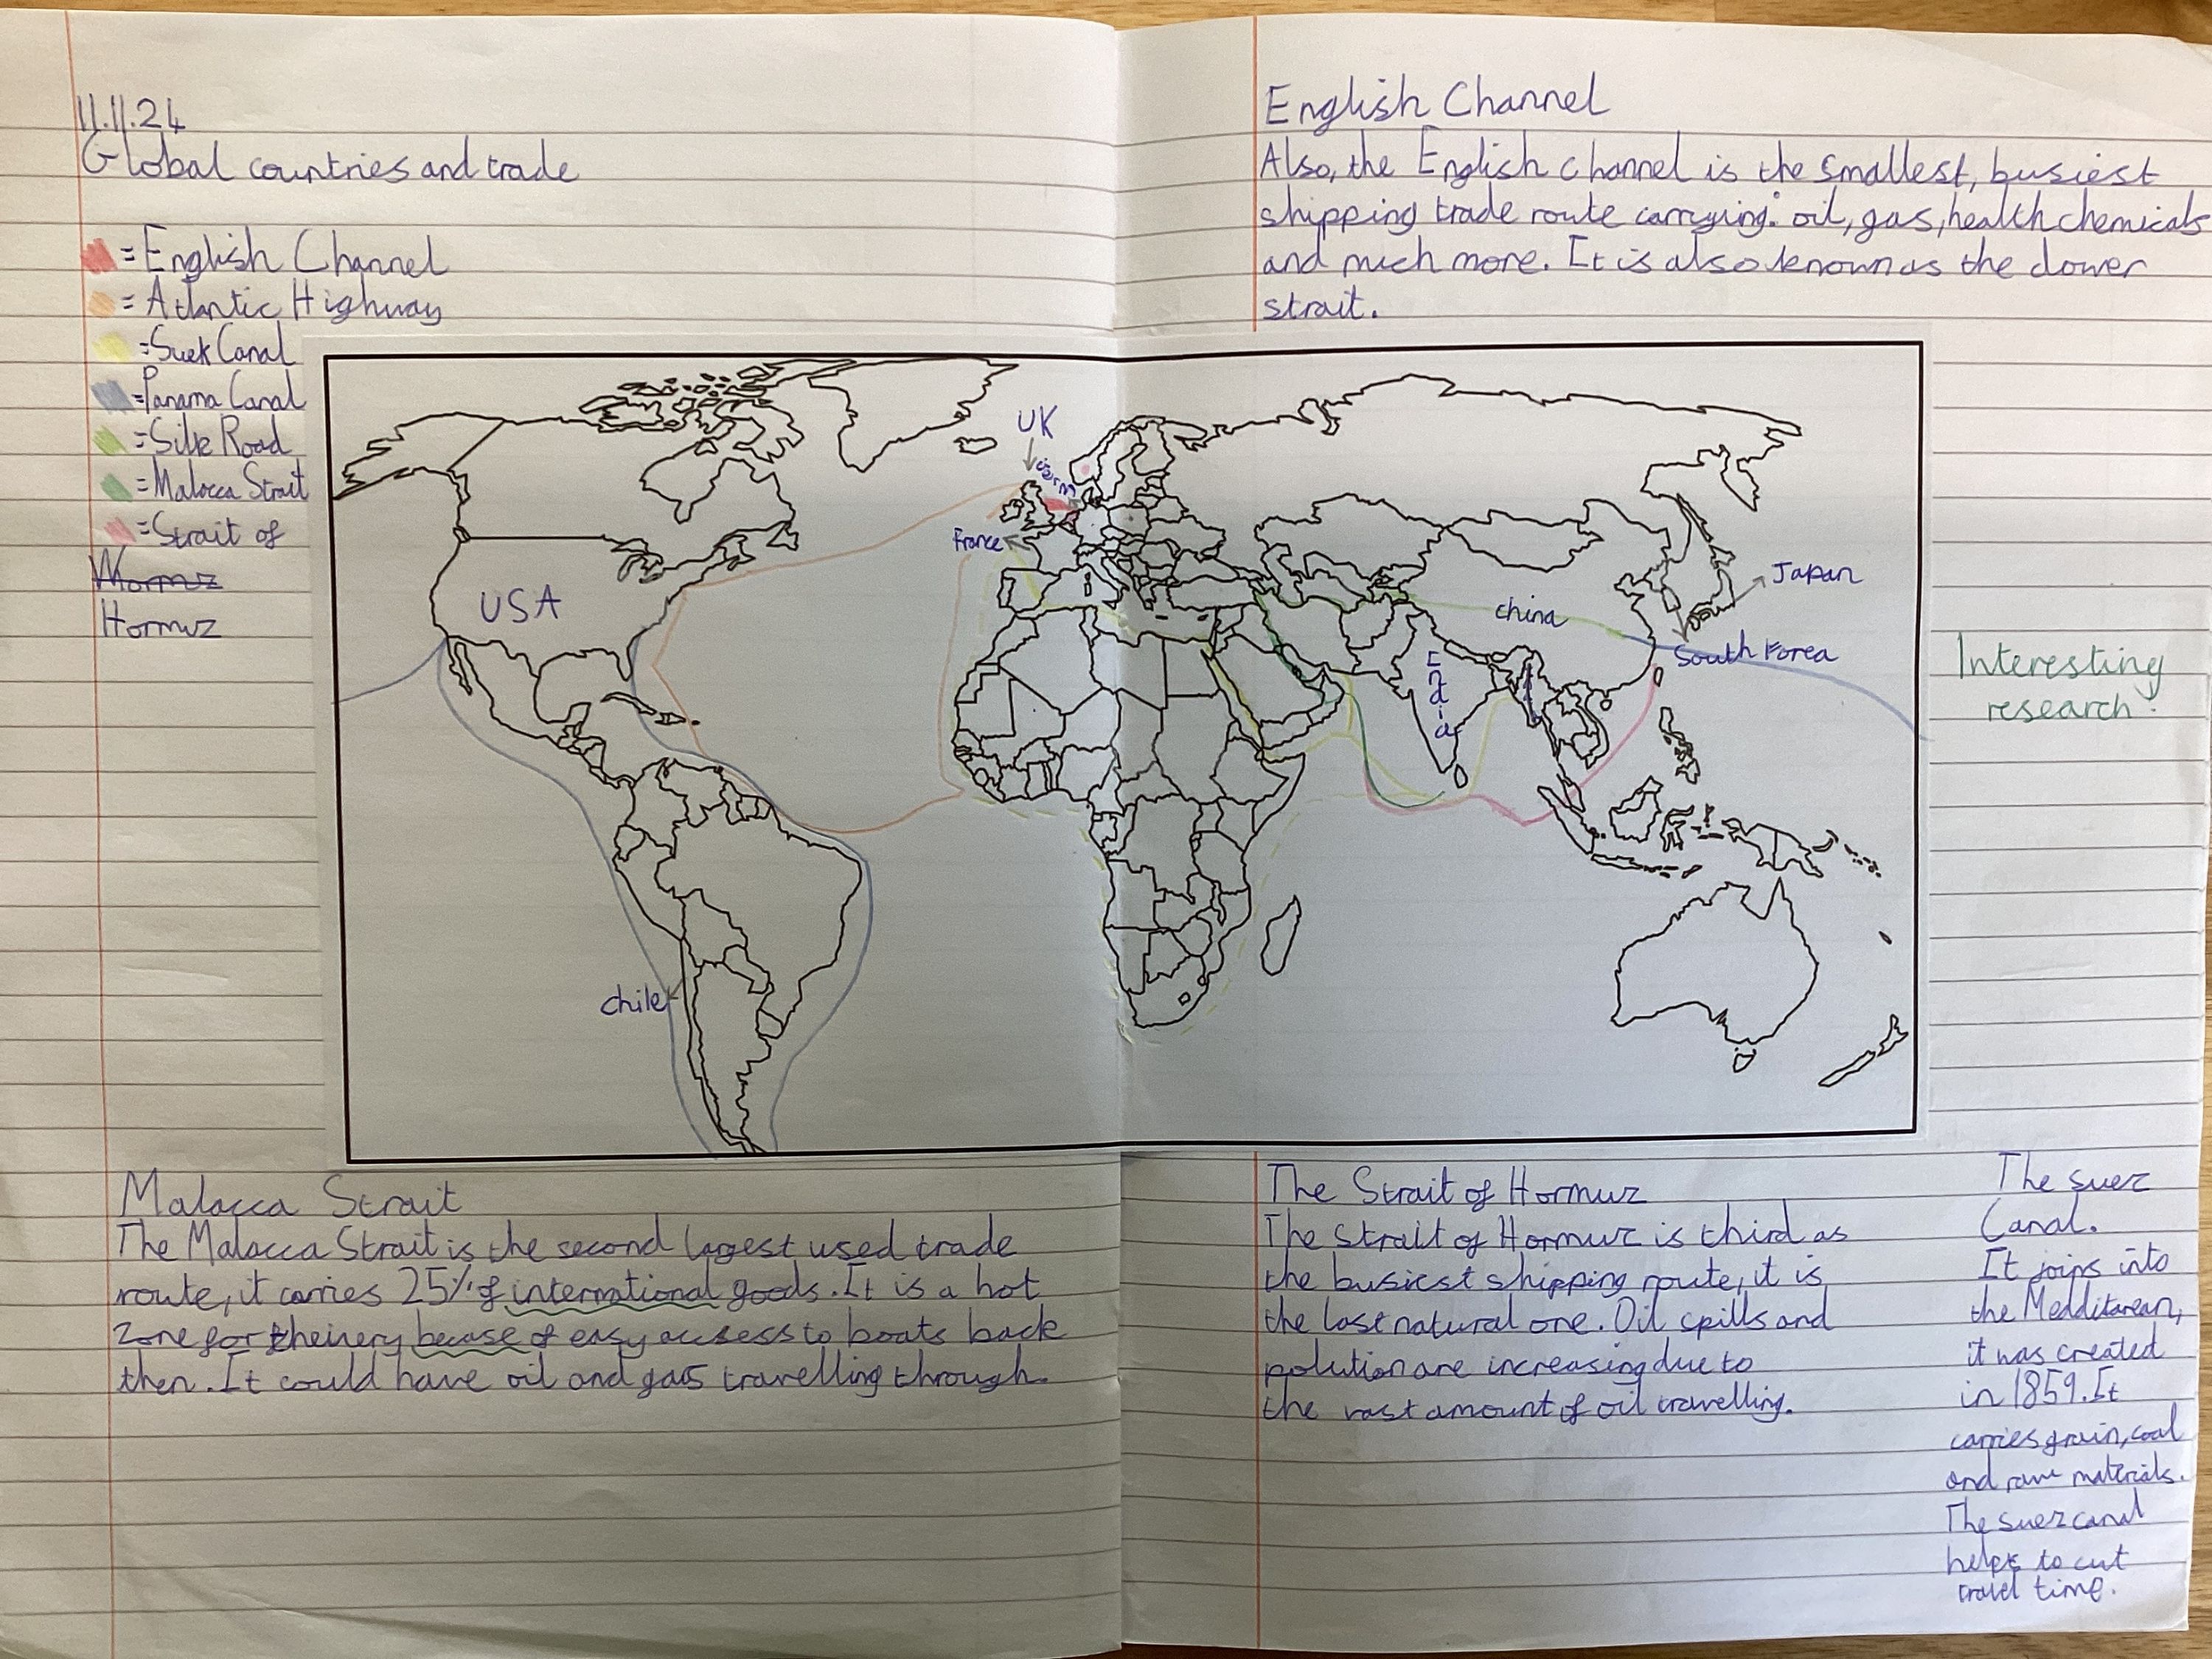 11.11.24
Global countries and trade
= English Channel
= Atlantic Highway
= Suek Canal
= Panama Canal
= Silk Road
= Malocca Strait
= Strait of
Hormuz
English Channel
Also, the English channel is the smallest, busiest
shipping trade route carrying: oil, gas, health chemicals
and much more. It is also known as the dower
strait.
UK
France
USA
Chile
China
India
Japan
South Korea
Interesting
research.
Malacca Strait
The Malacca Strait is the second largest used trade
route, it carries 25% of international goods. It is a hot
zone for becase of easy access to boats back
then. It could have oil and gas travelling through.
The Strait of Hormuz
The Strait of Hormuz is third as
the busiest shipping route, it is
the last natural one. Oil spills and
polution are increasing due to
the vast amount of oil travelling.
The suez
Canal.
It joins into
the Medditarean,
it was created
in 1859. It
carries grain, coal
and raw materials.
The suez canal
helps to cut
travel time.